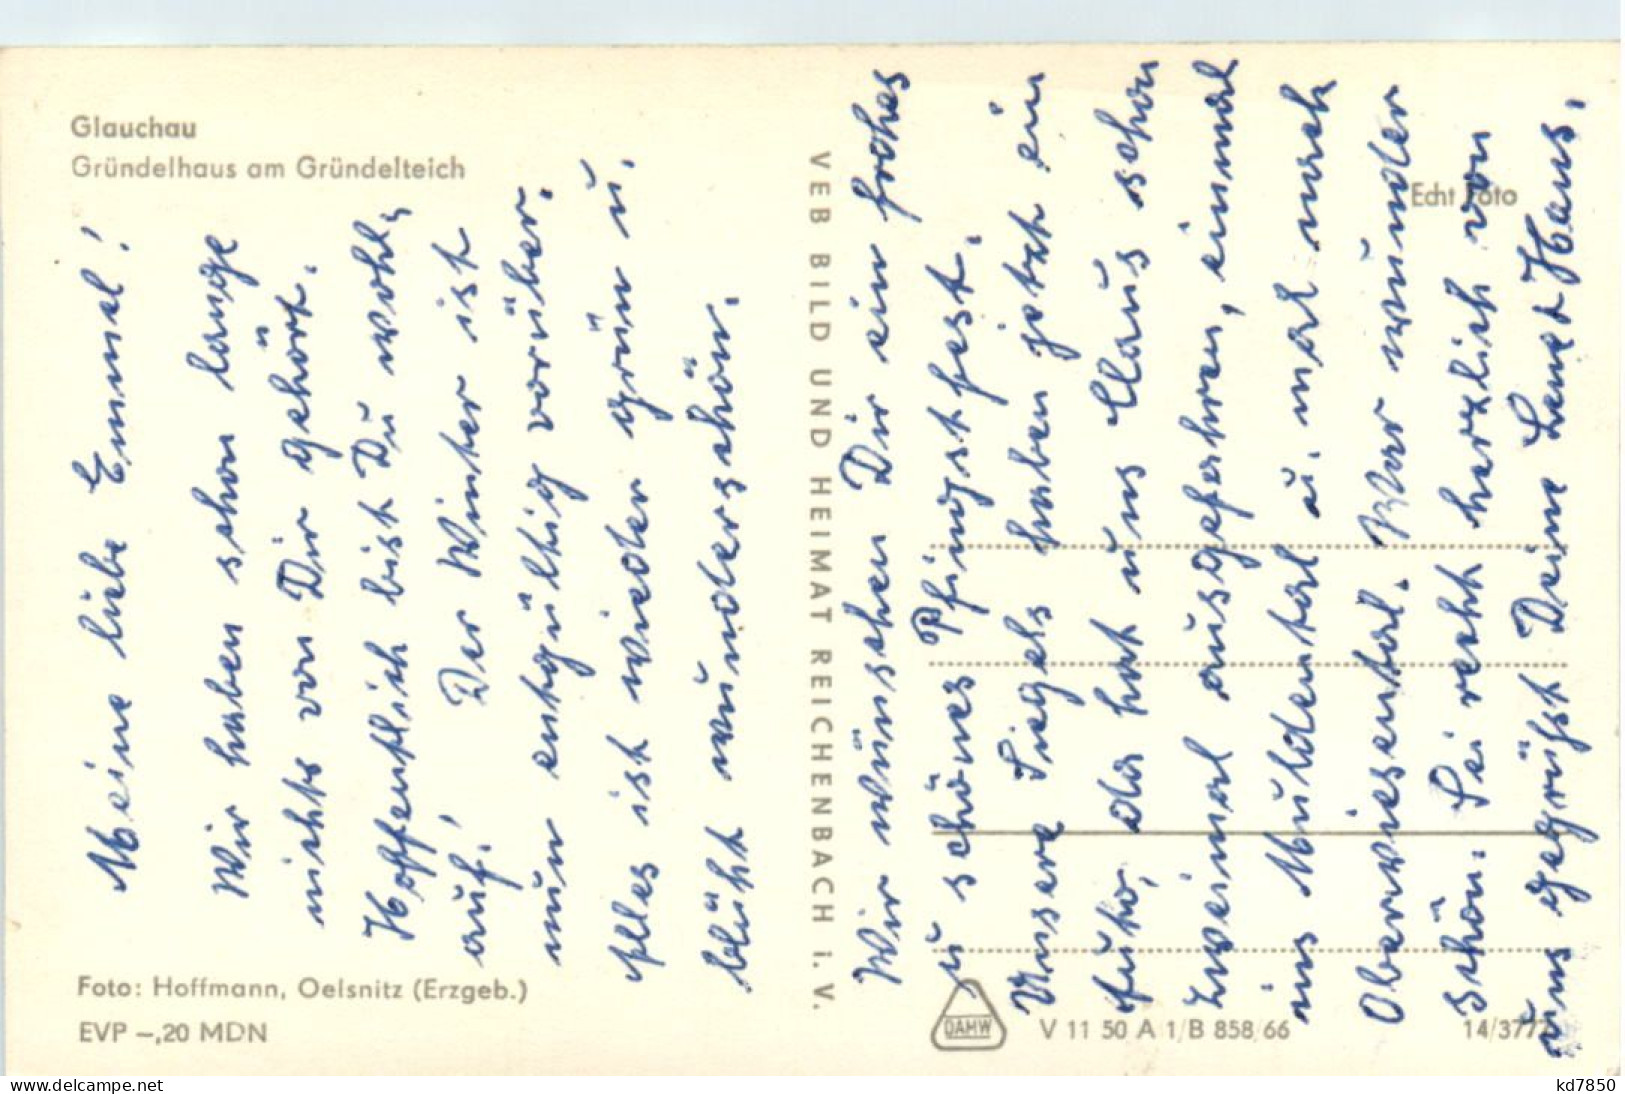 Glauchau
Gründelhaus am Gründelteich
Meine liebe Emmel!
Wir haben schon lange
nichts von Dir gehört.
Hoffentlich bist Du wohl,
auf!
Der Winter ist
nun entgültig vorüber.
Alles ist wieder grün u.
blüht wunderschön.
Foto: Hoffmann, Oelsnitz (Erzgeb.)
EVP –,20 MDN
VEB BILD UND HEIMAT REICHENBACH i. V.
Echt Foto
Wir wünschen Dir ein frohes
u schönes Pfingstfest.
Unsere Siegels haben jetzt ein
Auto, da hat uns Claus schon
zweimal ausgefahren, einmal
ins Muldental u. mal nach
Oberwiesental. War wunder
schön. Sei recht herzlich von
uns gegrüßt Deine Hans.
DAMW
V 11 50 A 1/B 858/66
14/377
www.delcampe.net
kd7850